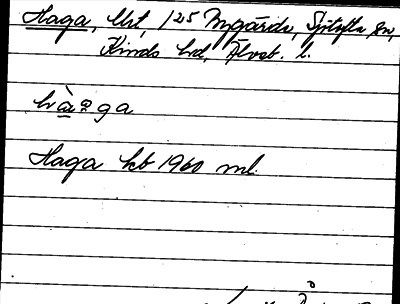 Haga, Urt, 125 Mgärde, Sjötofta sn,
Kinds hd, Älvsb. l.
hàga
Haga kb 1960 ml.